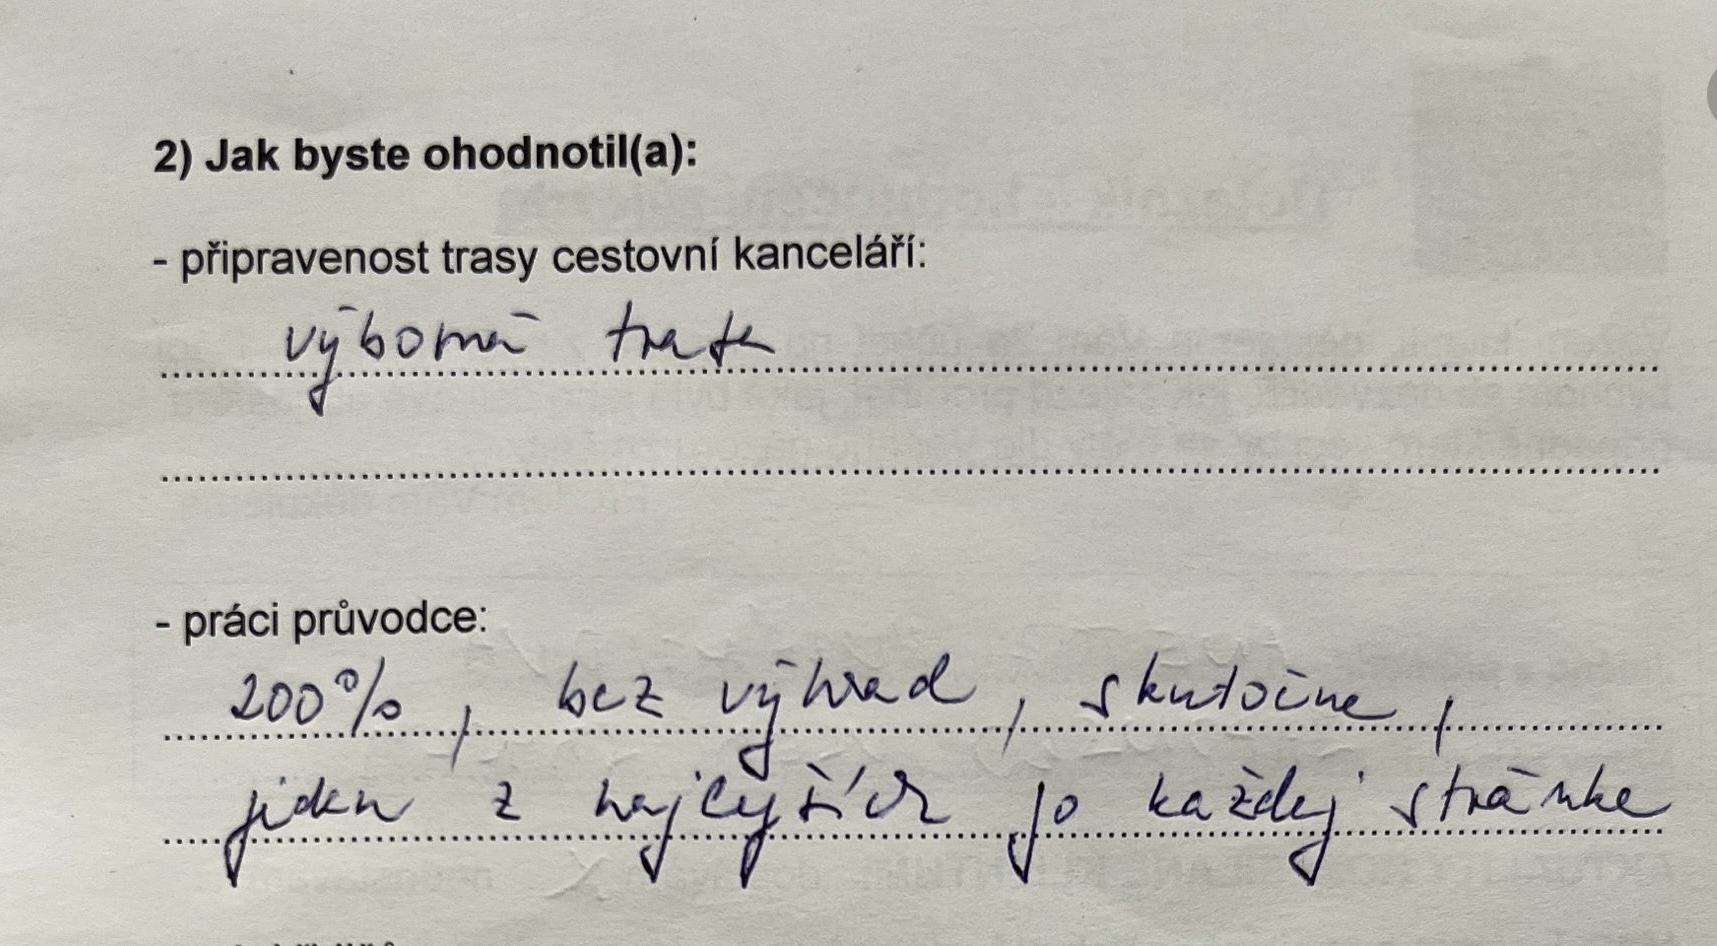 2) Jak byste ohodnotil(a):
- připravenost trasy cestovní kanceláří:
výborná trasa
- práci průvodce:
200%, bez výhrad, skutočne,
jeden z najlepších po každej stránke